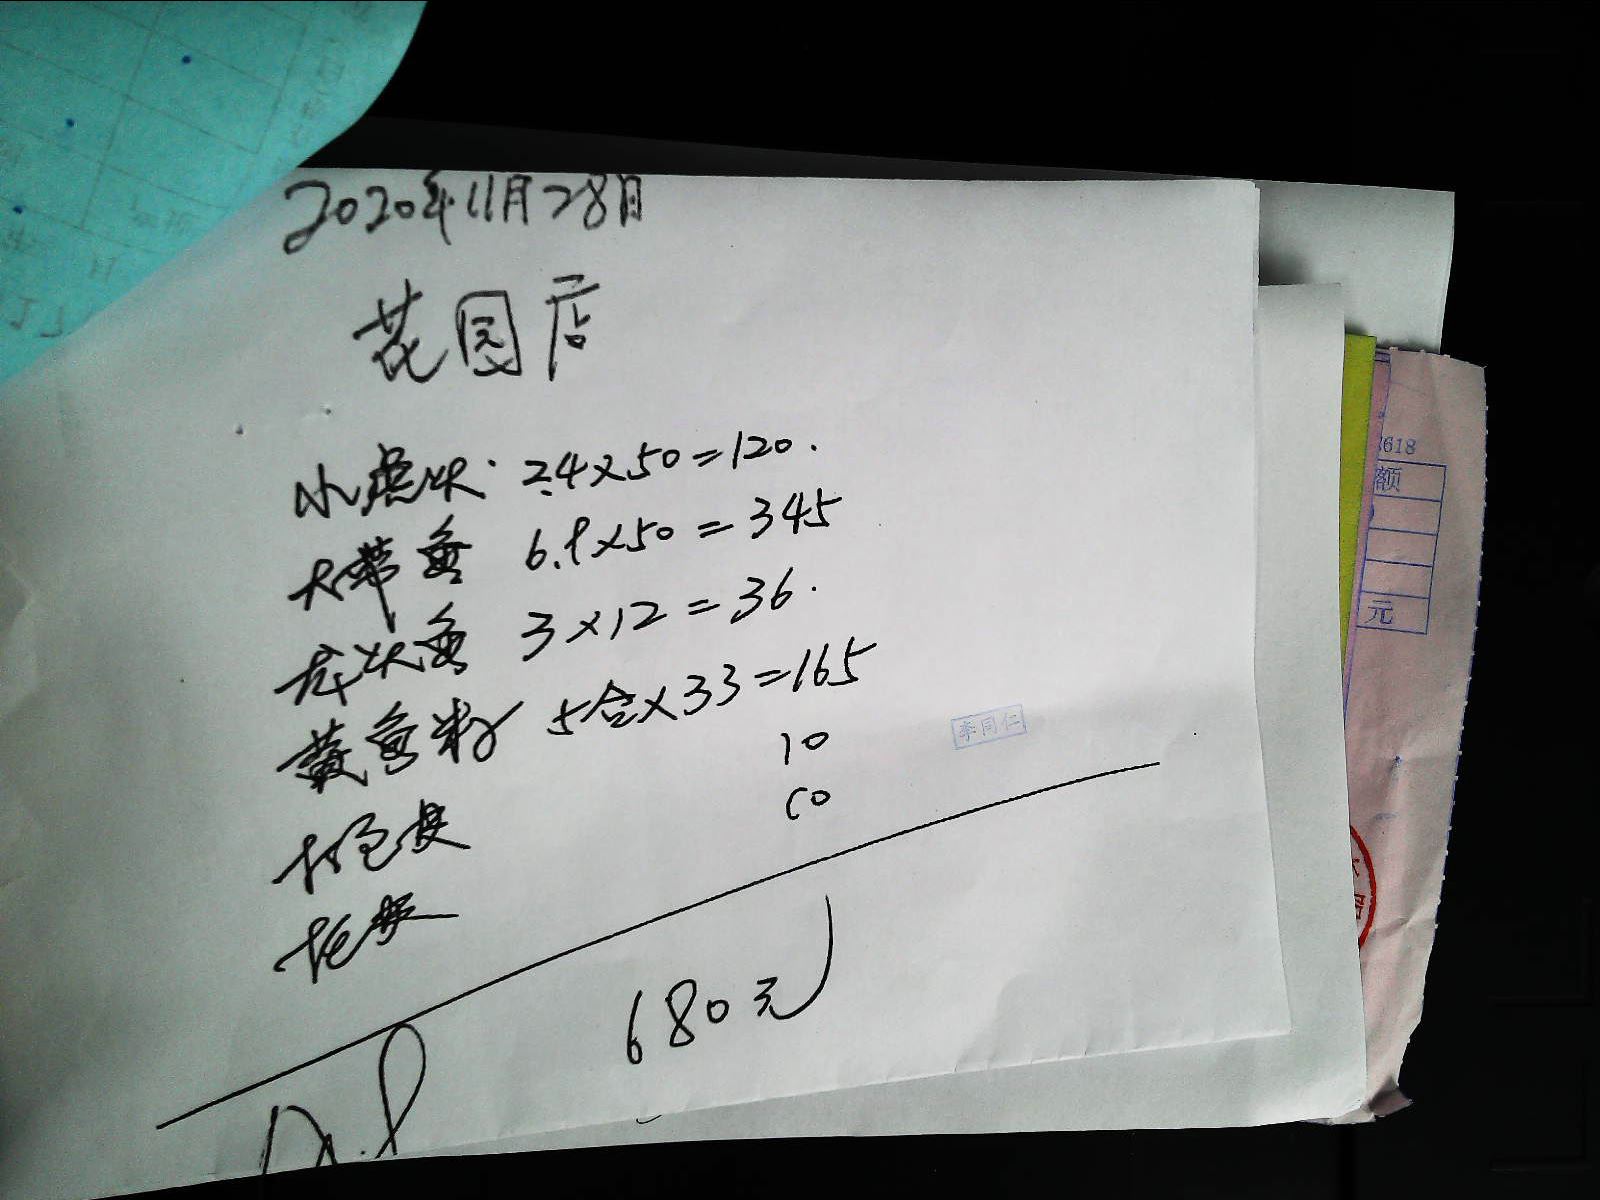 2020年11月28日
花园店
小
2.4×50=120.
大带鱼 6.9×50=345
龙头鱼 3×12=36.
黄鱼籽 5合×33=165
打包费 10
10
680元
李同仁
618
额
元